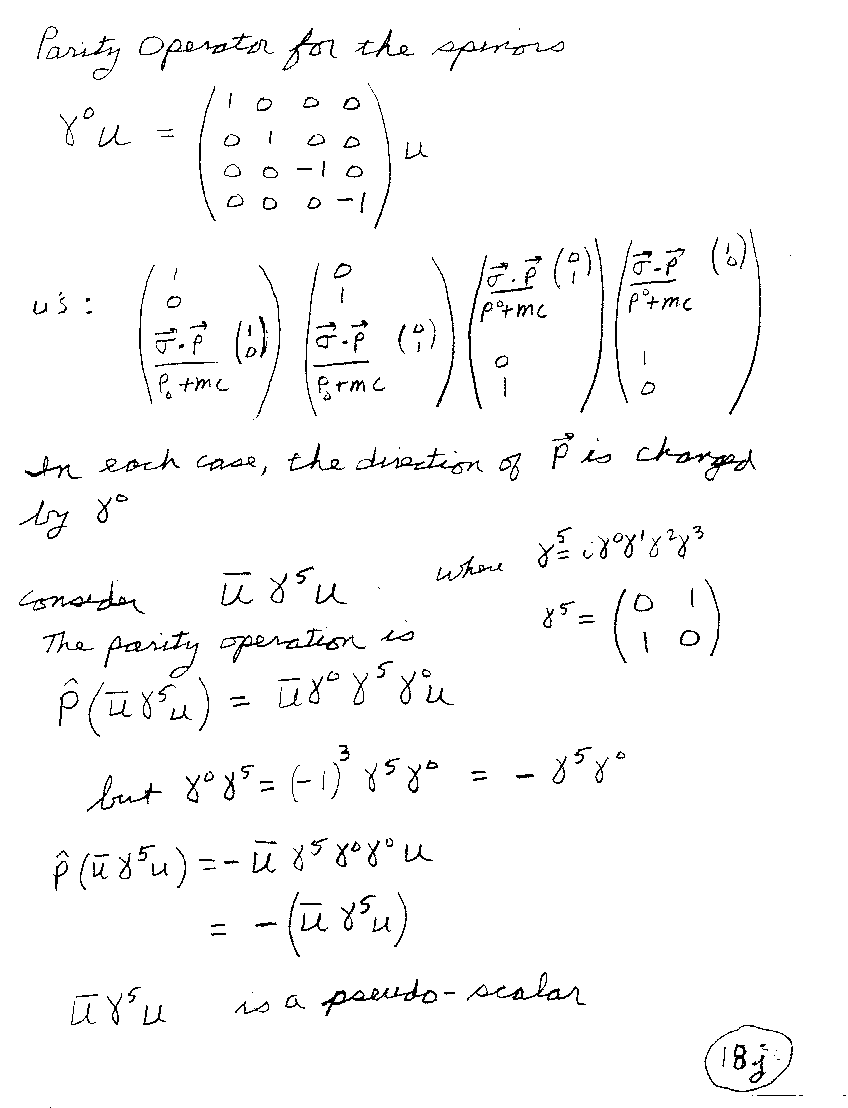 Parity Operator for the spinors
γ⁰u = (1 0 0 0
0 1 0 0
0 0 -1 0
0 0 0 -1) u
u's: (1 0 σ⃗·p⃗/(p₀+mc) (1 0)) (0 1 σ⃗·p⃗/(p₀+mc) (0 1)) (σ⃗·p⃗/(p⁰+mc) (0 1) 0 1) (σ⃗·p⃗/(p⁰+mc) (1 0) 1 0)
In each case, the direction of p⃗ is changed
by γ⁰
consider u̅ γ⁵ u . where γ⁵ = iγ⁰γ¹γ²γ³
γ⁵ = (0 1
1 0)
The parity operation is
P̂(u̅γ⁵u) = u̅γ⁰ γ⁵ γ⁰u
but γ⁰γ⁵ = (-1)³ γ⁵γ⁰ = - γ⁵γ⁰
P̂(u̅γ⁵u) = - u̅ γ⁵ γ⁰γ⁰ u
= -(u̅ γ⁵u)
u̅γ⁵u is a pseudo-scalar
18j